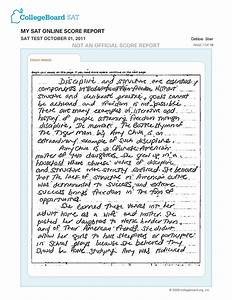 CollegeBoard SAT
MY SAT ONLINE SCORE REPORT
SAT TEST OCTOBER 01, 2011
Debbie Stier
NOT AN OFFICIAL SCORE REPORT
Begin your essay on this page. If you need more space, continue on the next page.
Discipline and structure are essential
components
structure and deliberate practice, goals cannot
be achieved and freedom is not possible.
There are many examples in literature and
history of people attaining freedom through
discipline. The memoir, The Battle Hymn of
the Tiger Mom by Amy Chua is an
extraordinary example of such discipline.
Amy Chua is a Chinese-American
mother of two daughters. She grew up in a
household where
and structure was strictly enforced. She believed
that the lack of structure in American culture
was detrimental to success, and extreme
success brings freedom in the form of
opportunities.
She turned these values into her
adult home as a wife and mother. She
pushed her daughters to work harder than
any of their American friends. She didn't
allow her girls to have sleepovers or participate
in school plays because she believed they
should be home studying. Amy was ridiculed